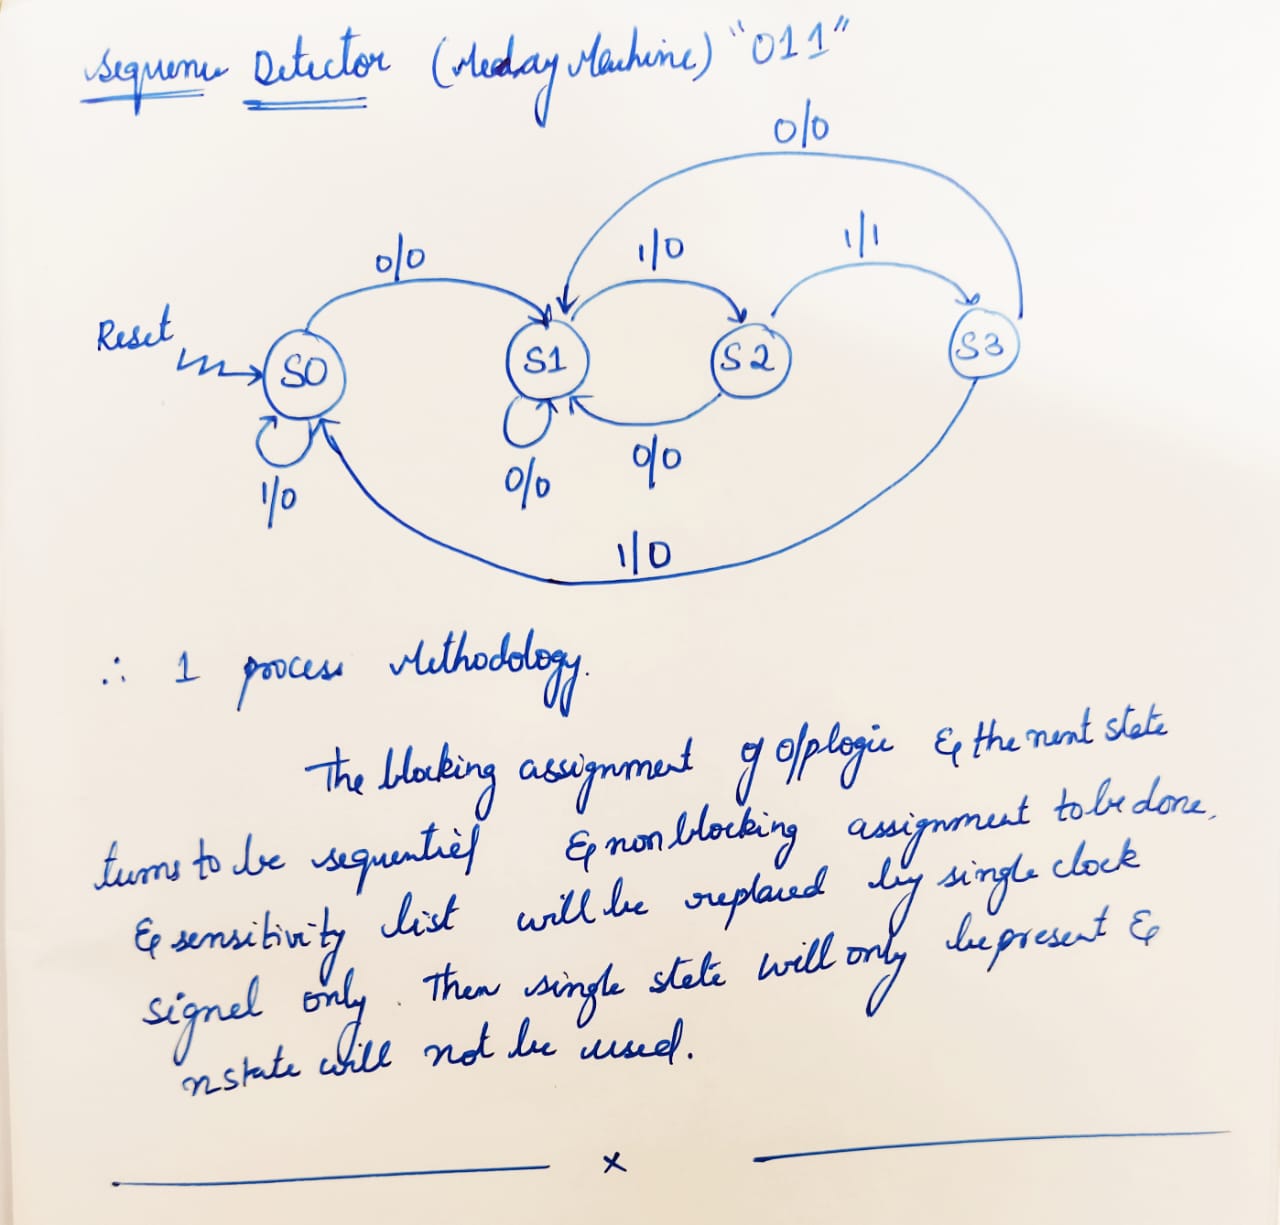 Sequence Detector (Mealay Machine) "011"
0/0
0/0
1/0
1/1
Reset
S0
S1
S2
S3
1/0
0/0
0/0
1/0
∴ 1 process Methodology.
The blocking assignment of o/p logic & the next state
turns to be sequentiel & non blocking assignment to be done,
& sensitivity list will be replaced by single clock
signel only. Then single state will only be present &
nstate will not be used.
x